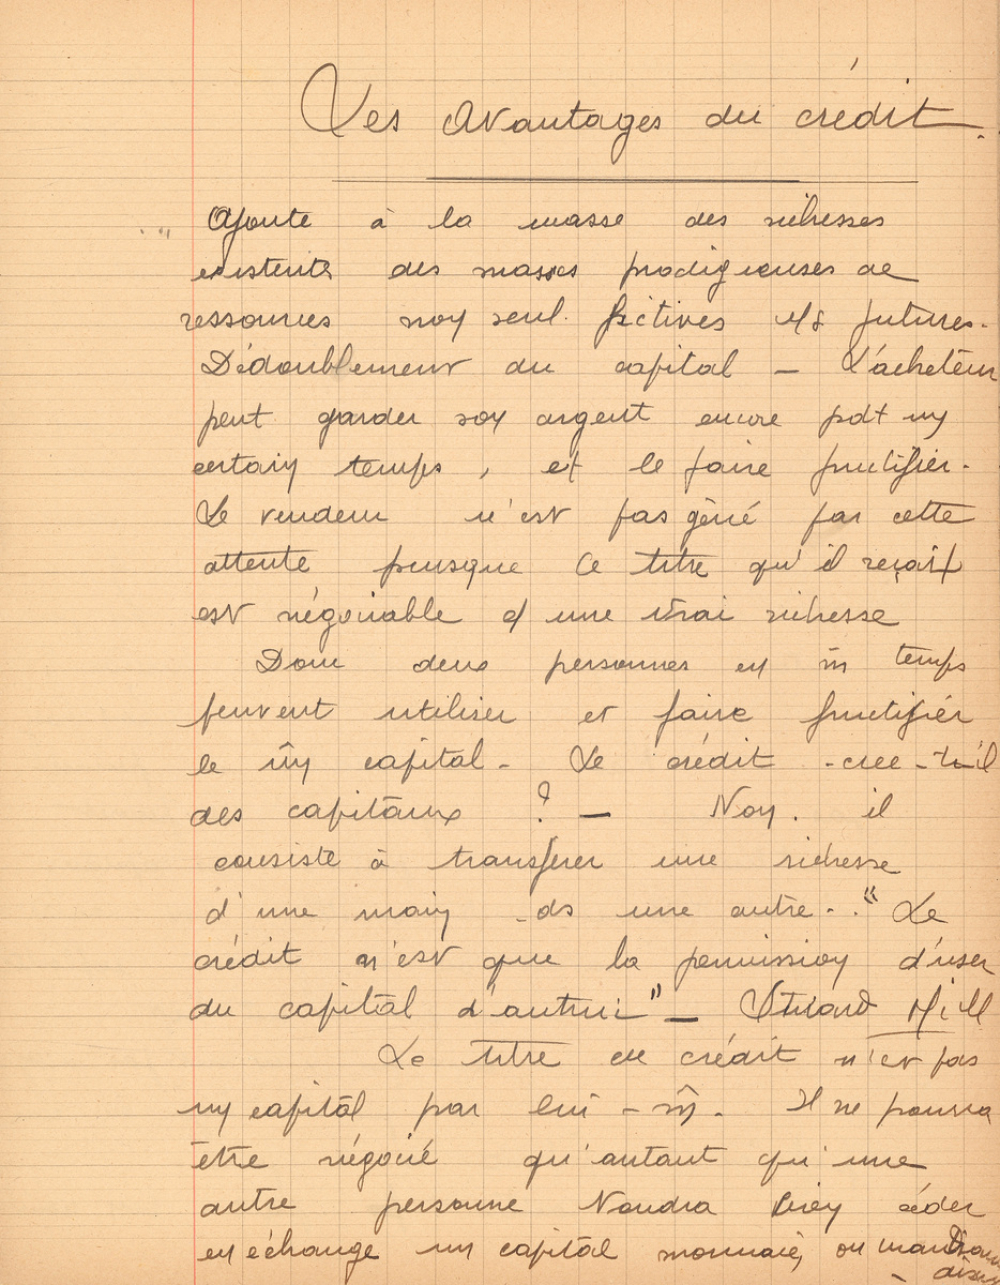 Les Avantages du crédit.
Ajoute à la masse des richesses
existents des masses prodigieuses de
ressources non seul. fictives ms futures.
Dédoublement du capital — L'acheteur
peut garder son argent encore pdt un
certain temps, et le faire fructifier.
Le vendeur n'est pas gêné par cette
attente puisque ce titre qu'il reçoit
est négociable et une vrai richesse
Donc deux personnes en m̂ temps
peuvent utiliser et faire fructifier
le m̂ capital. Le crédit crée-t-il
des capitaux ? — Non. il
consiste à transférer une richesse
d'une main ds une autre.. "Le
crédit n'est que la permission d'user
du capital d'autrui" — Stuard Mill
Le titre de crédit n'est pas
un capital par lui-m̂. Il ne pourra
être négocié qu'autant qu'une
autre personne voudra bien céder
en échange un capital monnaie, ou marchandise